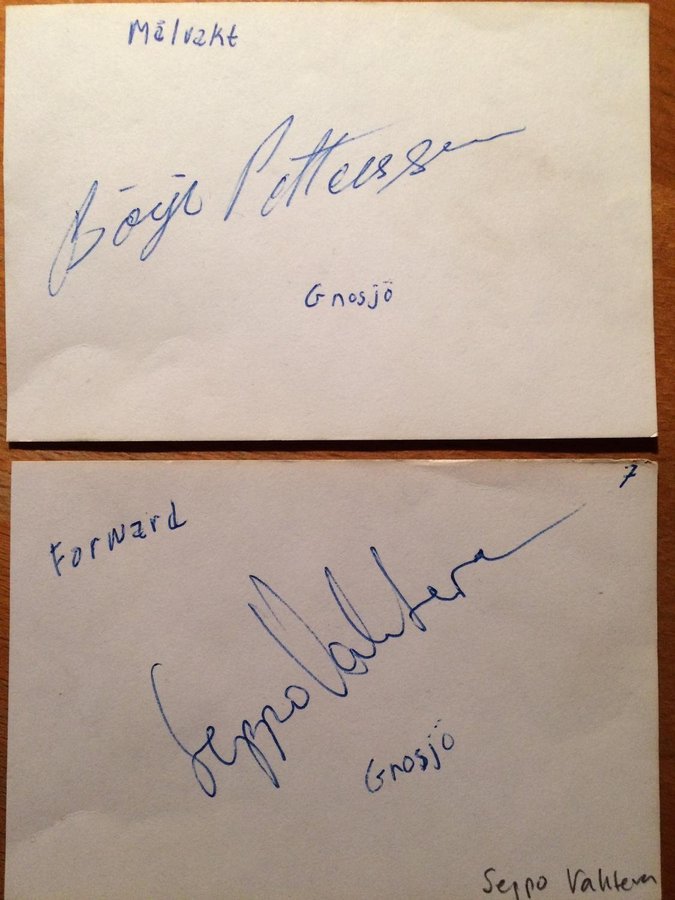 Målvakt
Börje Pettersson
Gnosjö
7
Forward
Seppo Vahtera
Gnosjö
Seppo Vahtera